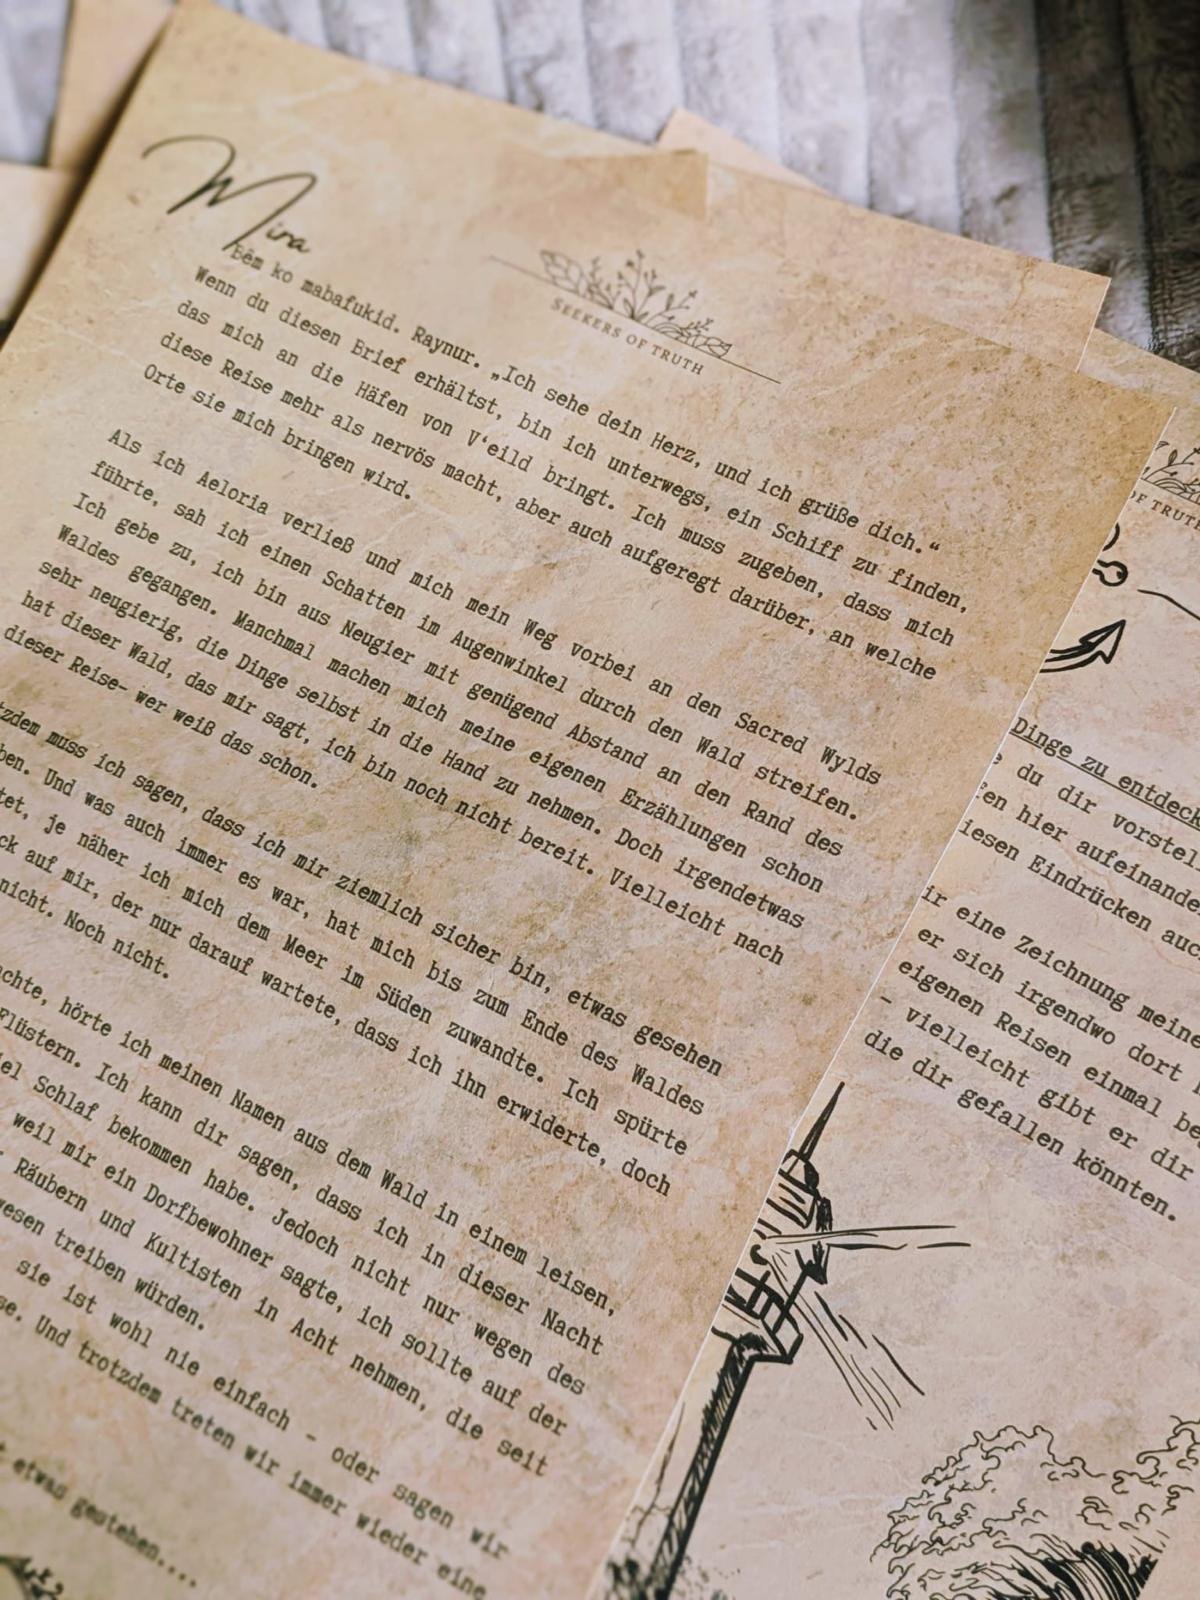 Mira
SEEKERS OF TRUTH
Bêm ko mabafukid. Raynur. „Ich sehe dein Herz, und ich grüße dich.“
Wenn du diesen Brief erhältst, bin ich unterwegs, ein Schiff zu finden,
das mich an die Häfen von V‘eild bringt. Ich muss zugeben, dass mich
diese Reise mehr als nervös macht, aber auch aufgeregt darüber, an welche
Orte sie mich bringen wird.
Als ich Aeloria verließ und mich mein Weg vorbei an den Sacred Wylds
führte, sah ich einen Schatten im Augenwinkel durch den Wald streifen.
Ich gebe zu, ich bin aus Neugier mit genügend Abstand an den Rand des
Waldes gegangen. Manchmal machen mich meine eigenen Erzählungen schon
sehr neugierig, die Dinge selbst in die Hand zu nehmen. Doch irgendetwas
hat dieser Wald, das mir sagt, ich bin noch nicht bereit. Vielleicht nach
dieser Reise- wer weiß das schon.
muss ich sagen, dass ich mir ziemlich sicher bin, etwas gesehen
Und was auch immer es war, hat mich bis zum Ende des Waldes
je näher ich mich dem Meer im Süden zuwandte. Ich spürte
auf mir, der nur darauf wartete, dass ich ihn erwiderte, doch
nicht. Noch nicht.
hörte ich meinen Namen aus dem Wald in einem leisen,
Flüstern. Ich kann dir sagen, dass ich in dieser Nacht
Schlaf bekommen habe. Jedoch nicht nur wegen des
weil mir ein Dorfbewohner sagte, ich sollte auf der
Räubern und Kultisten in Acht nehmen, die seit
treiben würden.
sie ist wohl nie einfach - oder sagen wir
Und trotzdem treten wir immer wieder eine
etwas gestehen....
OF TRUTH
Dinge zu entdeck
du dir vorstel
hier aufeinande
Eindrücken auc
eine Zeichnung meine
er sich irgendwo dort
eigenen Reisen einmal be
- vielleicht gibt er dir
die dir gefallen könnten.